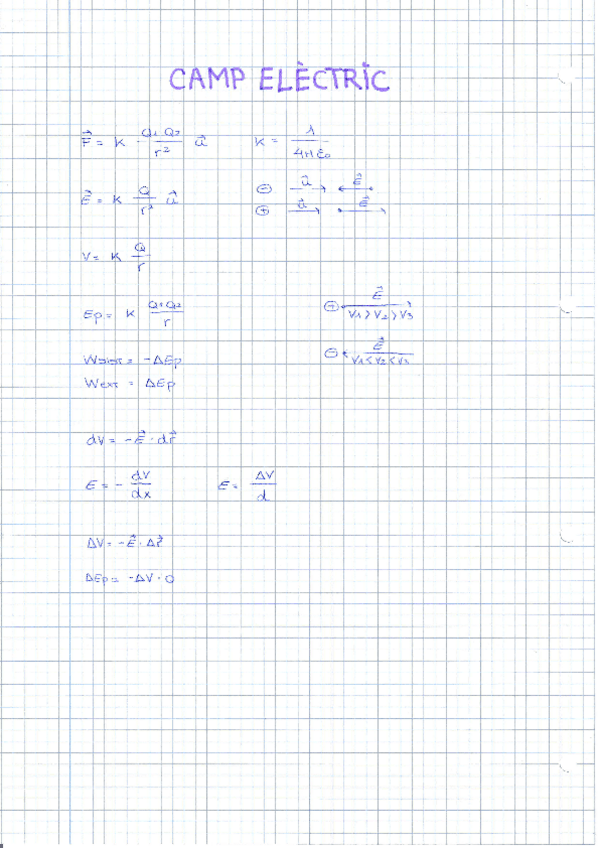 CAMP ELÈCTRIC
F⃗ = K · Q₁ Q₂ / r² u⃗    K = 1 / 4πε₀
E⃗ = K Q / r² u⃗    ⊖ u⃗ → ← E⃗
⊕ u⃗ → → E⃗
V = K Q / r
Ep = K Q₁Q₂ / r    ⊕ E⃗ V₁ > V₂ > V₃
Wsist = -ΔEp    ⊖ E⃗ V₁ < V₂ < V₃
Wext = ΔEp
dV = -E⃗ · dr⃗
E = - dV / dx    E = ΔV / d
ΔV = -E⃗ · Δr⃗
ΔEp = -ΔV · Q